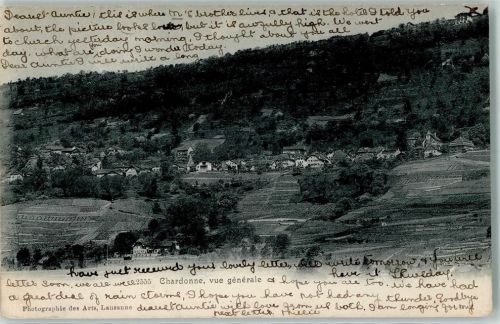 Dearest Auntie; this is where M's brother lives & that is the hotel I told you
about, the picture looks low, but it is awfully high. We went
to church yesterday morning. I thought about you all
day. what are doing I wonder today.
Dear Auntie I will write a long
have just received your lovely letter. and write tomorrow & you will
2555 Chardonne, vue générale
have it Thursday.
letter soon, we are well & hope you are too. We have had
a great deal of rain storms, I hope you have not had any thunder. Goodbye
Photographie des Arts, Lausanne
dearest auntie will love from us both, I am longing for my
next letter